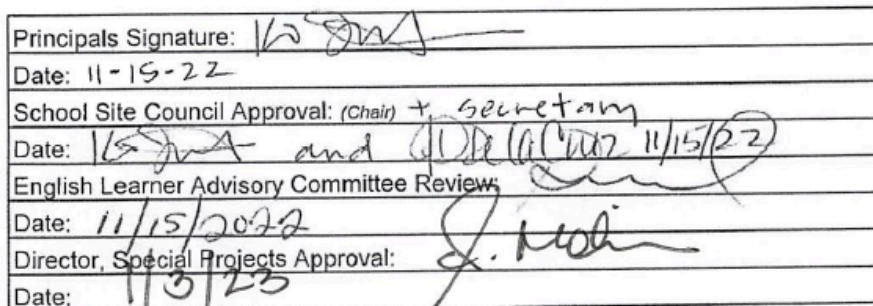 Principals Signature:
Date: 11-15-22
School Site Council Approval: (Chair) + secretary
Date: and 11/15/22
English Learner Advisory Committee Review:
Date: 11/15/2022
Director, Special Projects Approval:
Date: 1/3/23